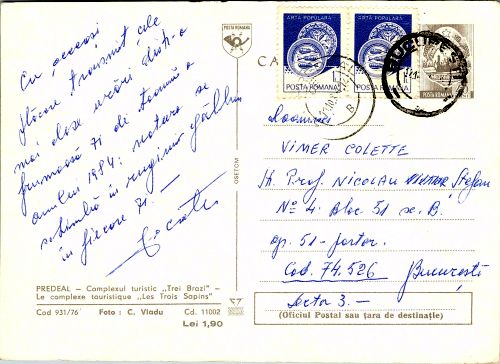 Cu aceeași
plăcere transmit cele
mai alese urări dintr-o
frumoasă zi de toamnă a
anului 1984: natura se
schimbă în ruginiu gălbui
în fiecare zi. —
POSTA ROMANA
CA
ARTA POPULARA
POSTA ROMANA
ARTA POPULARA
POSTA ROMANA
BUCUREȘTI
POSTA ROMANA
Doamnei
VIMER COLETTE
St. Prof. NICOLAU Ștefan
No 4 Bloc 51 sc. B.
ap. 51 - parter.
Cod. 74.526 București
Sector 3. —
(Oficiul Postal sau țara de destinație)
OSETCM
PREDEAL – Complexul turistic „Trei Brazi" –
Le complexe touristique „Les Trois Sapins"
Cod 931/76 Foto : C. Vladu Cd. 11002
Lei 1,90